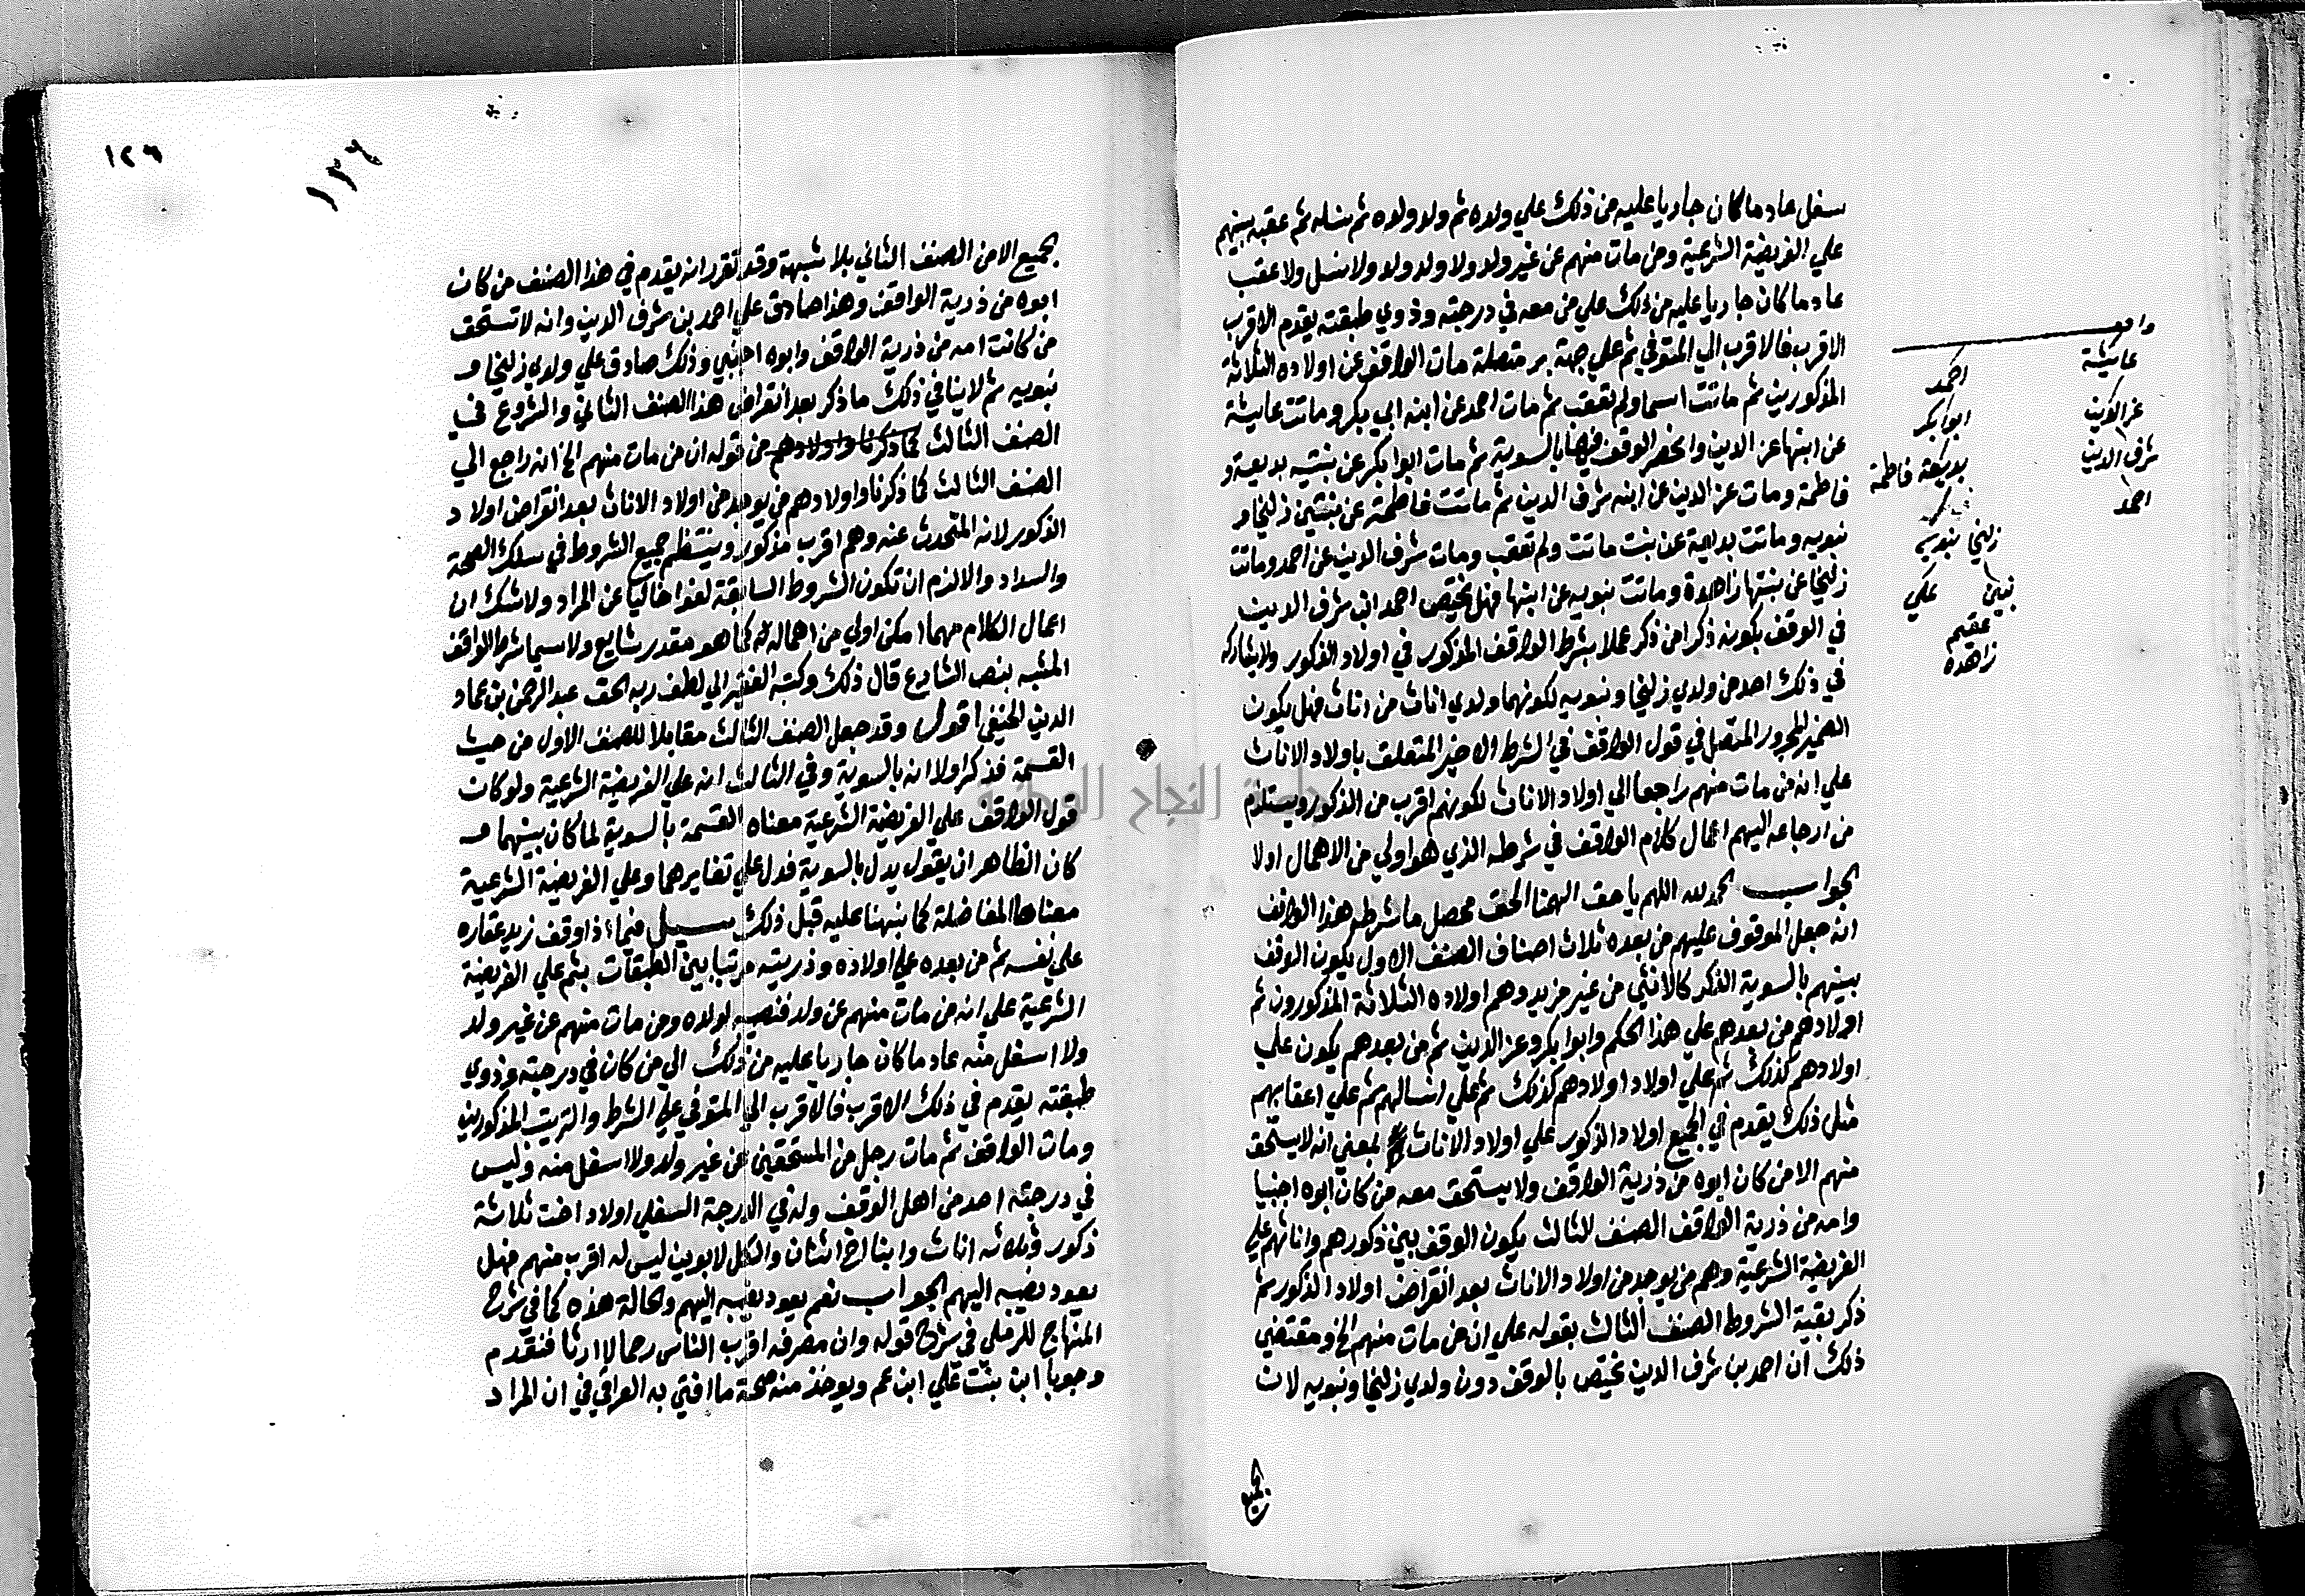 سفل عاد ما كان جاريا عليه من ذلك علي ولده ثم ولد ولده ثم نسله ثم عقبه بينهم
علي الفريضة الشرعية ومن مات منهم عن غير ولد ولا ولد ولد ولا نسل ولا عقب
عاد ما كان جاريا عليه من ذلك علي من معه في درجته وذوي طبقته يقدم الاقرب
الاقرب فالاقرب الي المتوفي ثم علي جهة بر متصلة مات الواقف عن اولاده الثلاثة
المذكورين ثم ماتت اسما ولم تعقب ثم مات احمد عن ابنه ابي بكر وماتت عايشة
عن ابنها عز الدين وانحصر الوقف فيهما بالسوية ثم مات ابوا بكر عن بنتيه بديعة و
فاطمة ومات عز الدين عن ابنه شرف الدين ثم ماتت فاطمة عن بنتين زليخا و
نبويه وماتت بديعة عن بنت ماتت ولم تعقب ومات شرف الدين عن احمد وماتت
زليخا عن بنتها زاهدة وماتت نبويه عن ابنها فهل يختص احمد ابن شرف الدين
في الوقف بكونه ذكرا من ذكر عملا بشرط الواقف المذكور في اولاد الذكور ولا يشاركه
في ذلك احد من ولدي زليخا ونبويه لكونهما ولدي اناث من اناث فهل يكون
الضمير المجرور المتصل في قول الواقف في الشرط الاخير المتعلق باولاد الاناث
علي انه من مات منهم راجعا الي اولاد الاناث لكونهم اقرب من الذكور ويستلزم
من ارجاعه اليهم اعمال كلام الواقف في شرطه الذي هو اولي من الاهمال اولا
الجواب الحمد لله اللهم يا حق الهمنا الحق محصل ما شرطه هذا الواقف
انه جعل الموقوف عليهم من بعده ثلاث اصناف الصنف الاول يكون الوقف
بينهم بالسوية الذكر كالانثي من غير مزيد وهم اولاده الثلاثة المذكورون ثم
اولادهم من بعدهم علي هذا الحكم وابوا بكر وعز الدين ثم من بعدهم يكون علي
اولادهم كذلك ثم علي اولاد اولادهم كذلك ثم علي انسالهم ثم علي اعقابهم
مثل ذلك يقدم في الجميع اولاد الذكور علي اولاد الاناث بمعني انه لا يستحق
منهم الا من كان ابوه من ذرية الواقف ولا يستحق معه من كان ابوه اجنبيا
وامه من ذرية الواقف الصنف الثالث يكون الوقف بين ذكورهم واناثهم علي
الفريضة الشرعية وهم من يوجد من اولاد الاناث بعد انقراض اولاد الذكور ثم
ذكر بقية الشروط الصنف الثالث بقوله علي ان من مات منهم الخ ومقتضي
ذلك ان احمد بن شرف الدين يختص بالوقف دون ولدي زليخا ونبويه لان
الجميع
واقف
عايشة
احمد
عز الدين
ابوا بكر
شرف الدين
بديعة فاطمة
احمد
زليخا نبويه
بنتين علي
عقيم
زاهده
١٢٦
١٣٦
الجميع الامن الصنف الثاني بلا شبهة وقد تقرر انه يقدم في هذا الصنف من كان
ابوه من ذرية الواقف وهذا صادق علي احمد بن شرف الدين وانه لا تستحق
من كانت امه من ذرية الواقف وابوه اجنبي وذلك صادق علي ولدي زليخا و
نبويه ثم لا ينافي ذلك ما ذكر بعد انقراض هذا الصنف الثاني والشروع في
الصنف الثالث كما ذكرنا واولادهم من قوله ان من مات منهم الخ انه راجع الي
الصنف الثالث كما ذكرنا واولادهم من يوجد من اولاد الاناث بعد انقراض اولاد
الذكور لانه المتحدث عنه وهم اقرب مذكور وينتظم جميع الشروط في سلك الصحة
والسداد والا لزم ان تكون الشروط السابقة لغوا خاليا عن المراد ولا شك ان
اعمال الكلام مهما امكن اولي من اهماله كما هو مقدر شايع ولا سيما شرط الواقف
المشبه بنص الشارع قال ذلك وكتبه الفقير الي لطف ربه الحق عبد الرحمن بن عماد
الدين الحنفي اقول وقد جعل الصنف الثالث مقابلا للصنف الاول من حيث
القسمة فذكر اولا انه بالسوية وفي الثالث انه علي الفريضة الشرعية ولو كان
قول الواقف علي الفريضة الشرعية معناه القسمة بالسوية لما كان بينهما و
كان الظاهر ان يقول يدل بالسوية فدل علي تغايرهما وعلي الفريضة الشرعية
معناها المفاضلة كما نبهنا عليه قبل ذلك سيل فيما اذا وقف زيد عقاره
علي نفسه ثم من بعده علي اولاده وذريته مرتبا بين الطبقات بثم علي الفريضة
الشرعية علي انه من مات منهم عن ولد فنصيبه لولاده ومن مات منهم عن غير ولد
ولا اسفل منه عاد ما كان جاريا عليه من ذلك الي من كان في درجته وذوي
طبقته يقدم في ذلك الاقرب فالاقرب الي المتوفي علي الشرط والترتيب المذكورين
ومات الواقف ثم مات رجل من المستحقين عن غير ولد ولا اسفل منه وليس
في درجته احد من اهل الوقف وله في الدرجة السفلي اولاد اخت ثلاثة
ذكور وثلاثه اناث وابنا اخ اثنان والكل لابوين ليس له اقرب منهم فهل
يعود نصيبه اليهم الجواب نعم يعود نصيبه اليهم والحالة هذه كما في شرح
المنهاج للرملي في شرح قوله وان مصرفه اقرب الناس رحما لا ارثا فتقدم
وجوبا ابن بنت علي ابن عم ويوخذ منه صحة ما افتي به العراقي في ان المراد